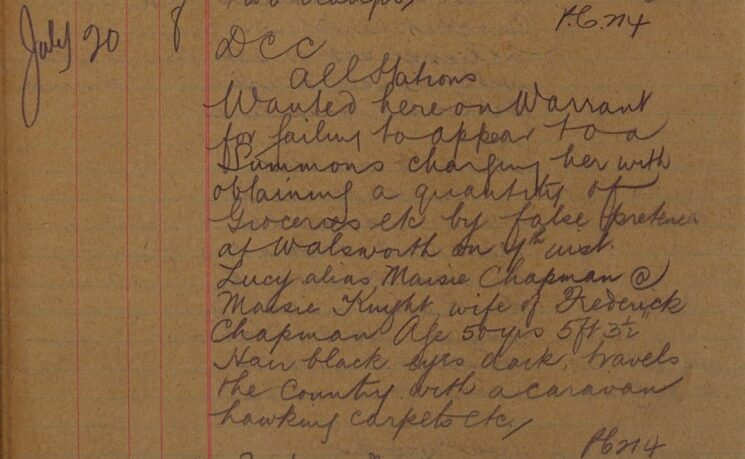 P.C. 114
July 20
DCC
All Stations
Wanted here on Warrant
for failing to appear to a
Summons charging her with
obtaining a quantity of
Groceries etc by false pretence
at Walsworth on 4th inst.
Lucy alias Maisie Chapman @
Maisie Knight wife of Frederick
Chapman Age 50 yrs 5ft 3½"
Hair black eyes dark, travels
the Country with a caravan
hawking carpets etc/
PC 114